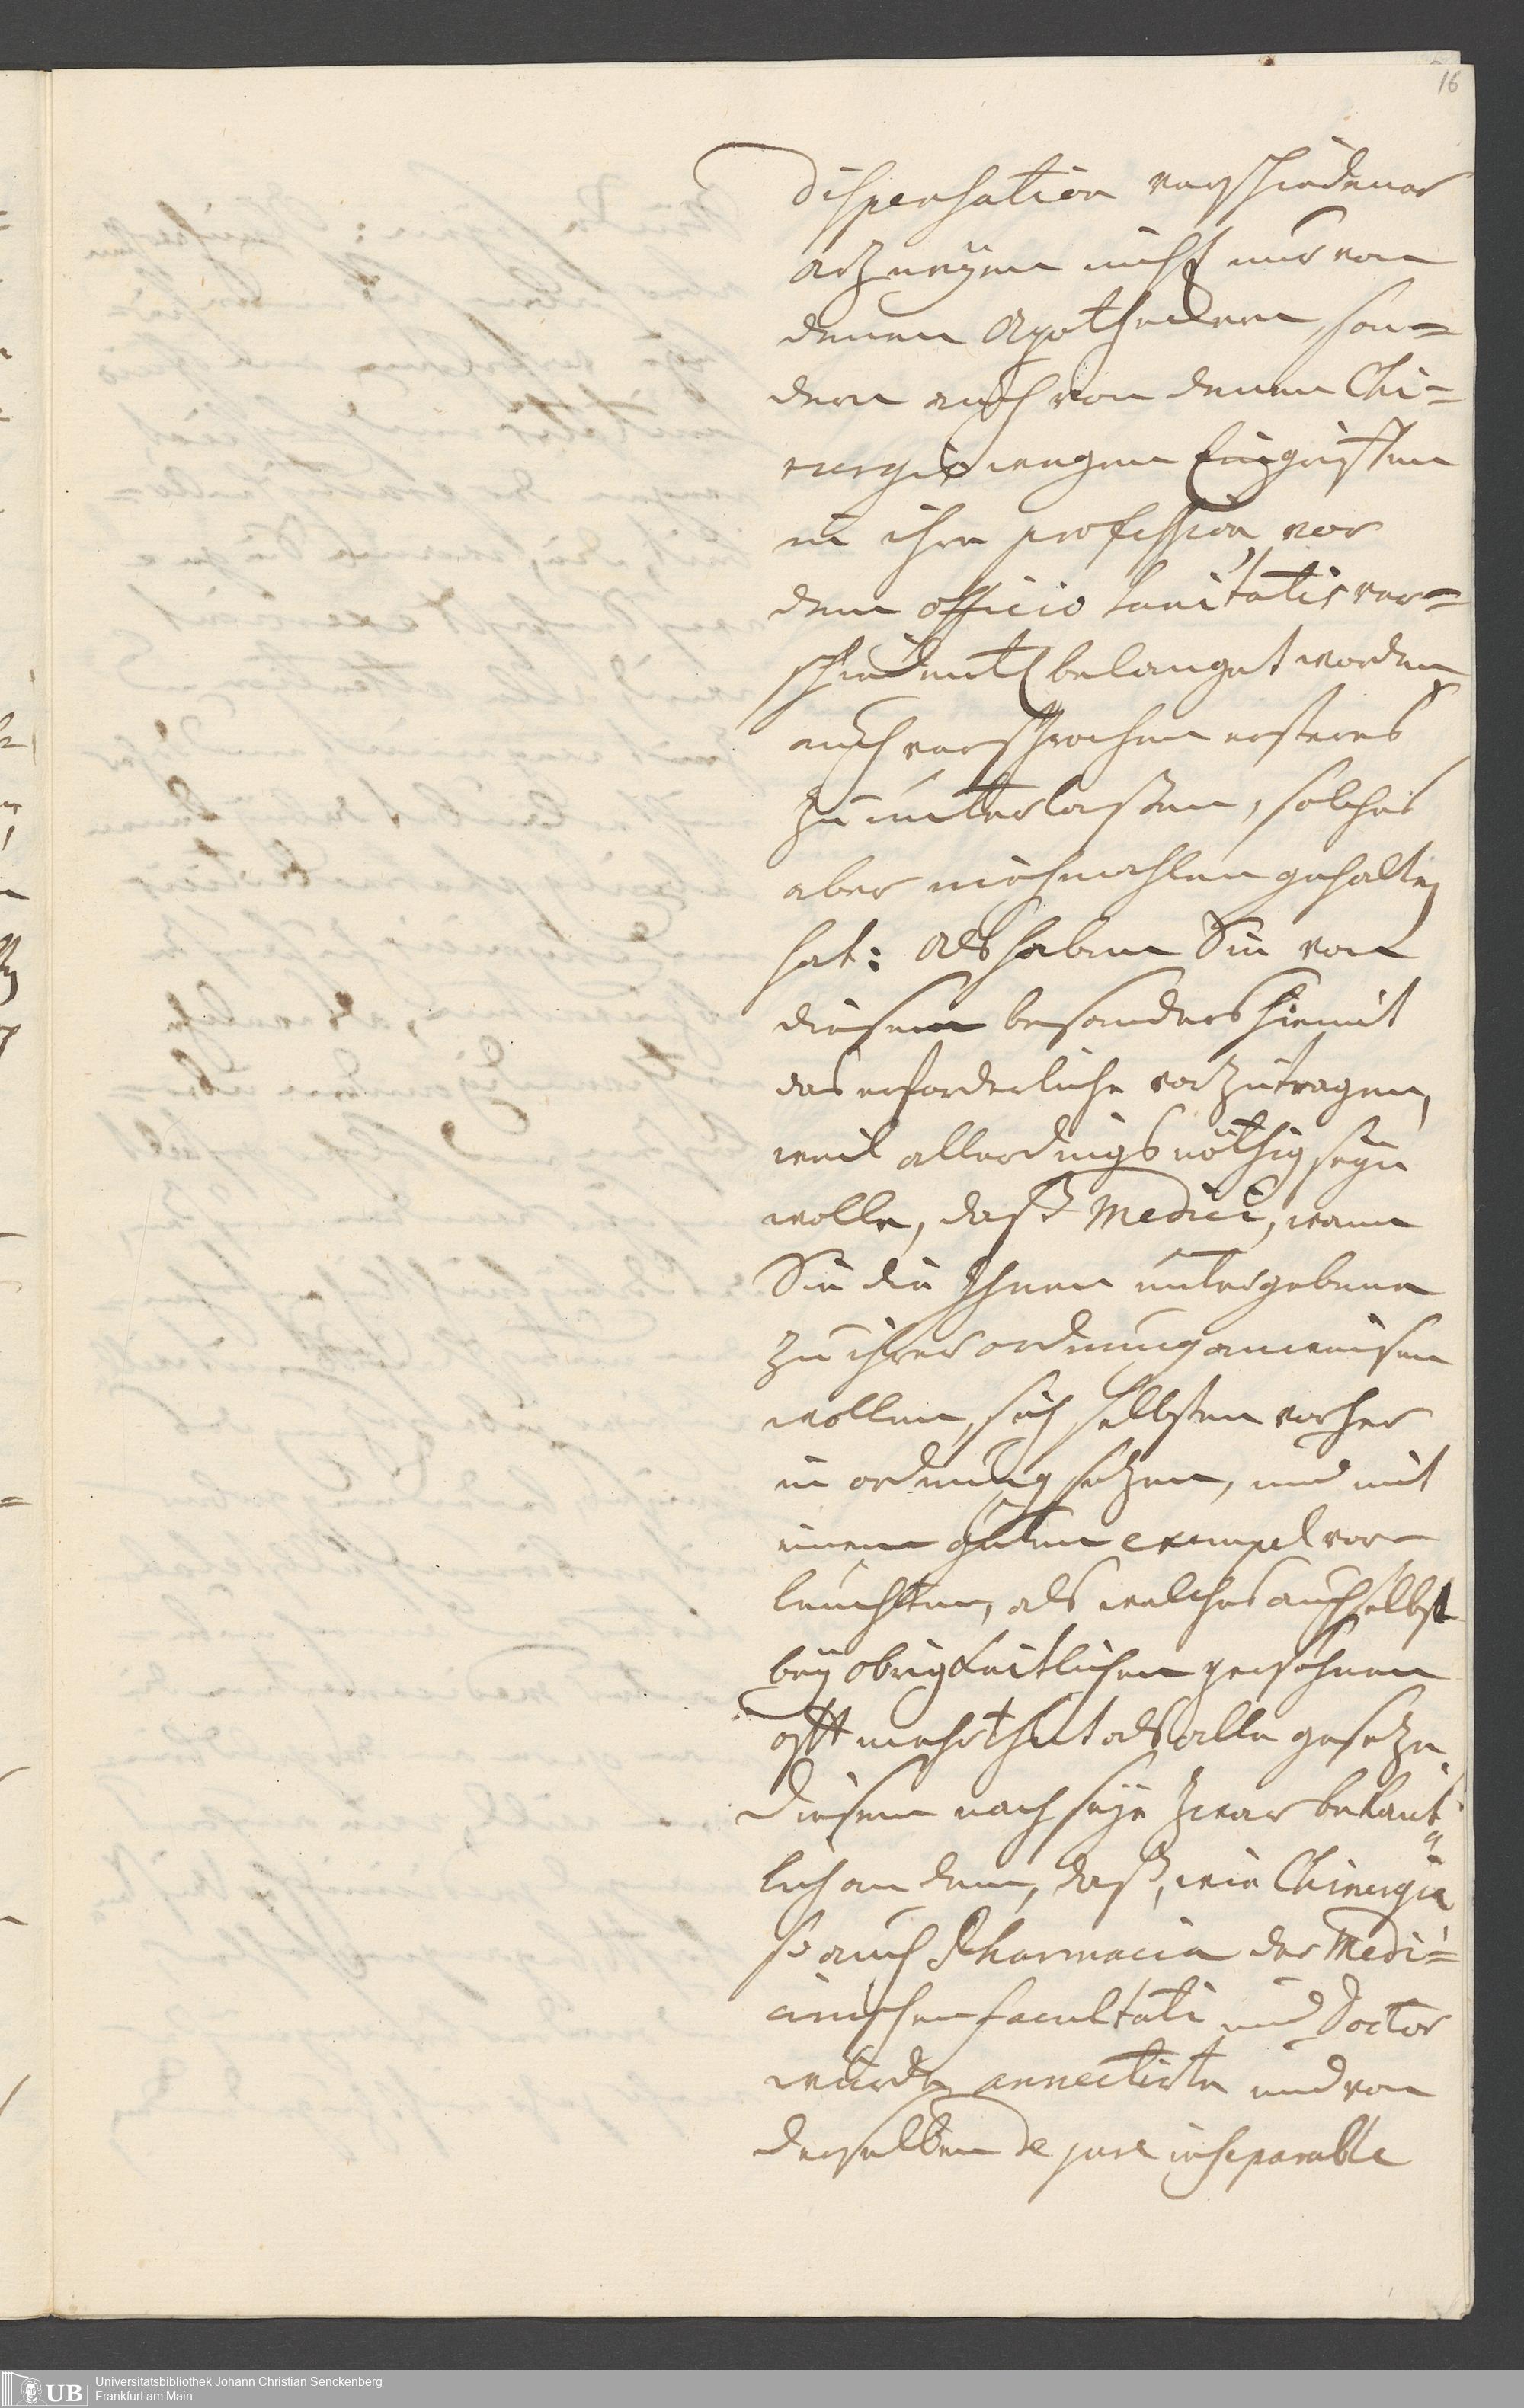 16
Dispensation verschiedener
artzneyen nicht nur von
denen Apotheckern, son=
dern auch von denen Chi=
rurgis wegen Eingriffen
in ihre profession vor
dem officio Sanitatis ver=
schiedentl. belanget worden
auch versprochen ersteres
zu unterlaßen, solches
aber niehmahlen gehalten
hat: Als haben Sie von
diesem besonders hiemit
das erforderliche vorzutragen,
weil allerdings nöthig seyn
wolle, daß Medici, wann
Sie die Ihnen untergebene
zu ihrer ordnung anweisen
wollen, sich selbsten vorher
in ordnung setzen, und mit
einem guten exempel vor
leuchten, als welches auch selbst
bey obrigkeitlichen persohnen
offt mehr thut als alle gesetze.
Diesem nach seye zwar bekant=
lich an dem, daß, wie Chirurgia
so auch Pharmacia der Medi=
cinischen facultati und Doctor
würde annectirte und von
derselben de jure inseparable
UB
Universitätsbibliothek Johann Christian Senckenberg
Frankfurt am Main